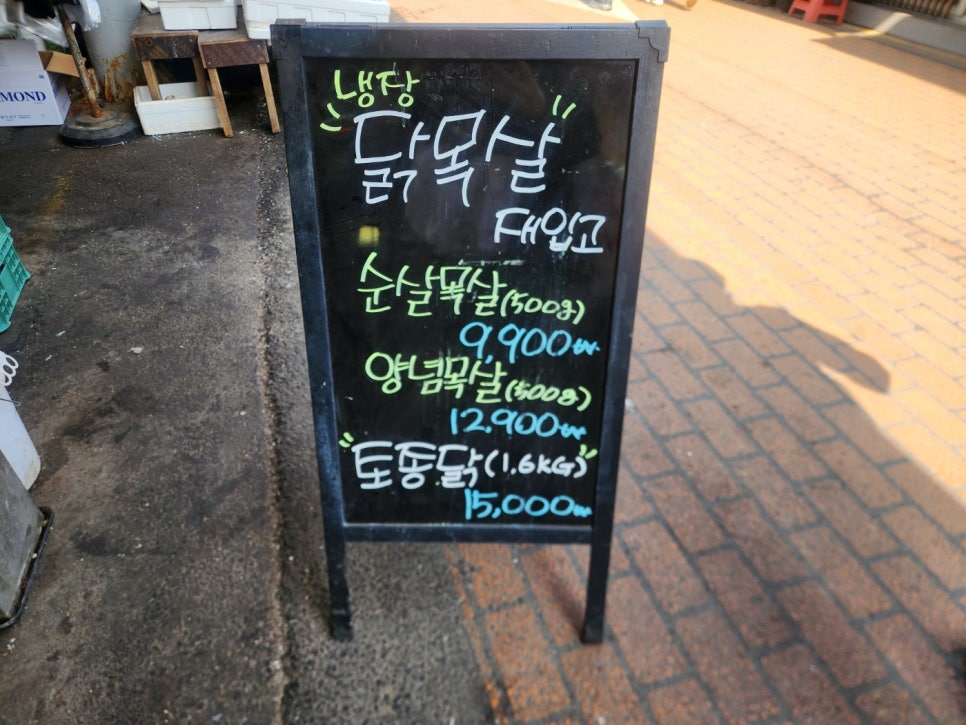 MOND
냉장
"닭목살"
재입고
순살목살(500g)
9,900₩
양념목살(500g)
12,900₩
"토종닭(1.6KG)"
15,000₩